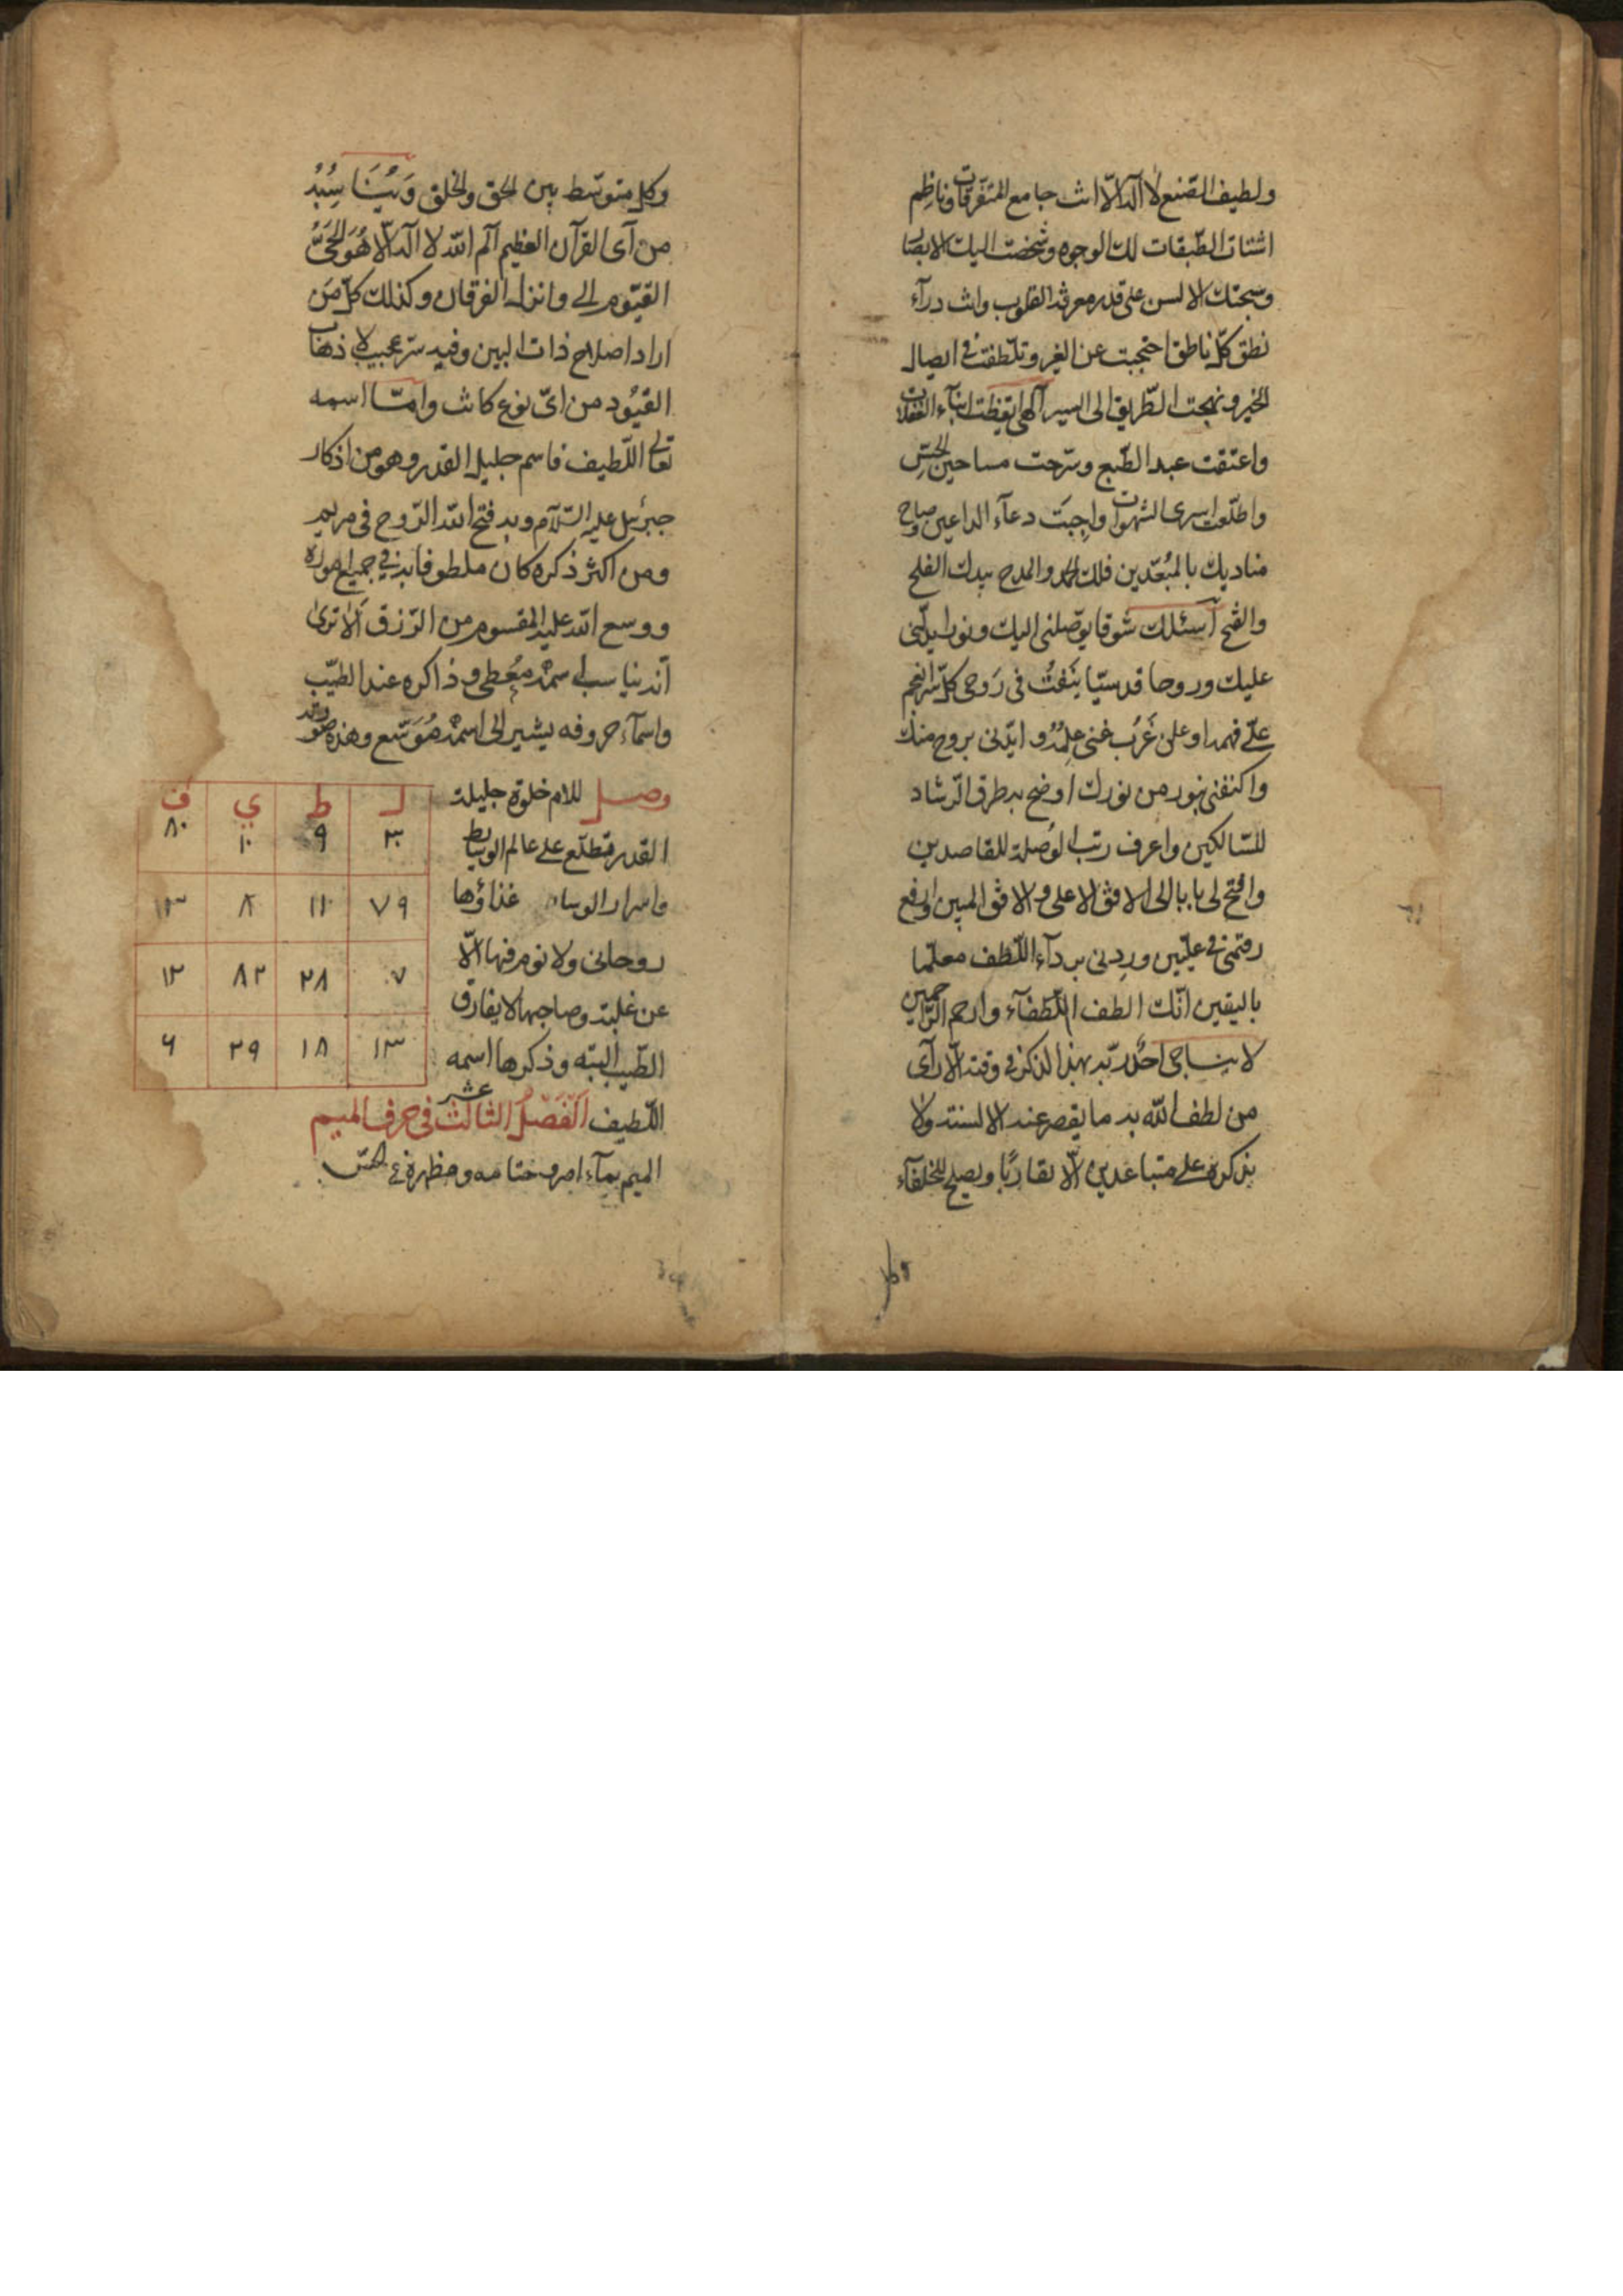 ولطيف الصنع لا اله الا انت جامع المتفرقات وناظم
اشتات الطبقات لك الوجوه وشخصت اليك الابصار
وسبحتك الالسن على قدر معرفة القلوب وانت درآء
نطق كل ناطق احتجبت عن الغير وتلطفت في ايصال
الخير ونهجت الطريق الى السير آلهى ايقظت ابنآء الغفلات
واعتقت عبد الطبع وسرحت مساجين الحس
واطلعت اسرى الشهوات واجبت دعآء الداعين وصباح
مناديك بالمبعدين فلك الحمد والمدح بيدك الفلح
والفتح أسئلك شوقا يوصلنى اليك ونورا يدلنى
عليك وروحا قدسيا ينفث فى روحى كل سر انعجم
على فهمه او علن غرب عنى علمه و ايدنى بروح منك
واكنفنى بنور من نورك اوضح به طرق الرشاد
للسالكين واعرف رتب الوصلة للقاصدين
وافتح لى بابا الى الافق الاعلى والافق المبين وارفع
رقمى في عليين وردنى بردآء اللطف معلما
باليقين انك الطف اللطفآء وارحم الراحمين
لا يناجى احد ربه بهذا الذكر في وقته الا رآى
من لطف الله به ما يقصر عنه الالسنة ولا
يذكره على متباعدين الا تقاربا ويصلح للخلفآء
وكل متوسط بين الحق والخلق
من آى القرآن العظيم آلم الله لا اله الا هو الحى
القيوم الى وانزل الفرقان وكذلك كل من
اراد اصلاح ذات البين وفيه سر عجيب لاذهاب
القيود من اى نوع كانت واما اسمه
تعالى اللطيف فاسم جليل القدر وهو من اذكار
جبرئيل عليه السلام وبه فتح الله الروح فى مريم
ومن اكثر ذكره كان ملطوفا به في جميع اموره
ووسع الله عليه المقسوم من الرزق ألا ترى
ان اسمه معطى وذاكره عند الطيب
واسمآء حروفه يشير الى اسمه موسع وهذه صورته
وصل للام خلوة جليلة
القدر تطلع على عالم الوسايط
واسرار الوسايط غذاؤها
روحانى ولا نوم فيها الا
عن غلبة وصاحبها لا يفارق
الطيب البته وذكرها اسمه
ل ط ي ف
٣٠ ٩ ١٠ ٨٠
٧٩ ١١ ٨ ٣١
٧ ٢٨ ٨٢ ١٢
١٣ ١٨ ٢٩ ٦
اللطيف الفصل الثالث عشر فى حرف الميم
الميم بمآء امر ختامه ومظهره في الحس